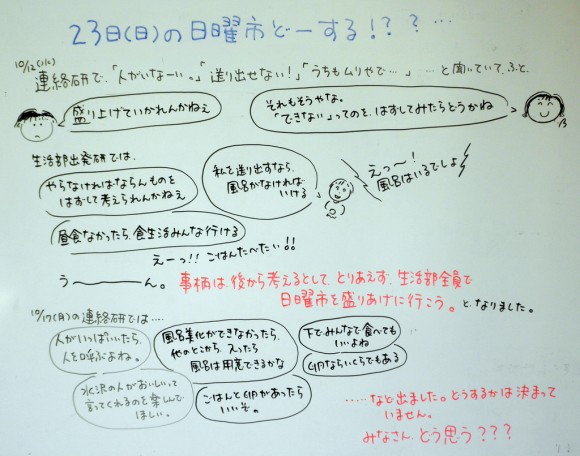 23日(日)の日曜市どーする!??…
連絡研で、「人がいなーい。」「送り出せない!」「うちもムリやで…」…と聞いていて、ふと、
盛り上げていかれんかねぇ
それもそうやな。
「できない」ってのを、はずしてみたらどうかね
生活部出発研では、
やらなければならんものを
はずして考えられんかねぇ
私を送り出すなら、
風呂がなければ
いける
えっ〜!
風呂はいるでしょ
昼食なかったら、食生活みんな行ける
えーっ!!ごはんたべたい!!
う〜ん。事柄は、後から考えるとして、とりあえず、生活部全員で
日曜市を盛りあげに行こう。と、なりました。
10/17(月)の連絡研では…
人がいっぱいいたら、
人を呼ぶよね。
風呂美化ができなかったら、
他のとこから、入ったら
風呂は用意できるかな
下でみんなで食べても
いいよね
GPならいくらでもある
水沢の人がおいしいって
言ってくれるのを楽しんで
ほしい。
ごはんとGPがあったら
いいぞ。
……など出ました。どうするかは決まって
いません。
みなさん、どう思う???